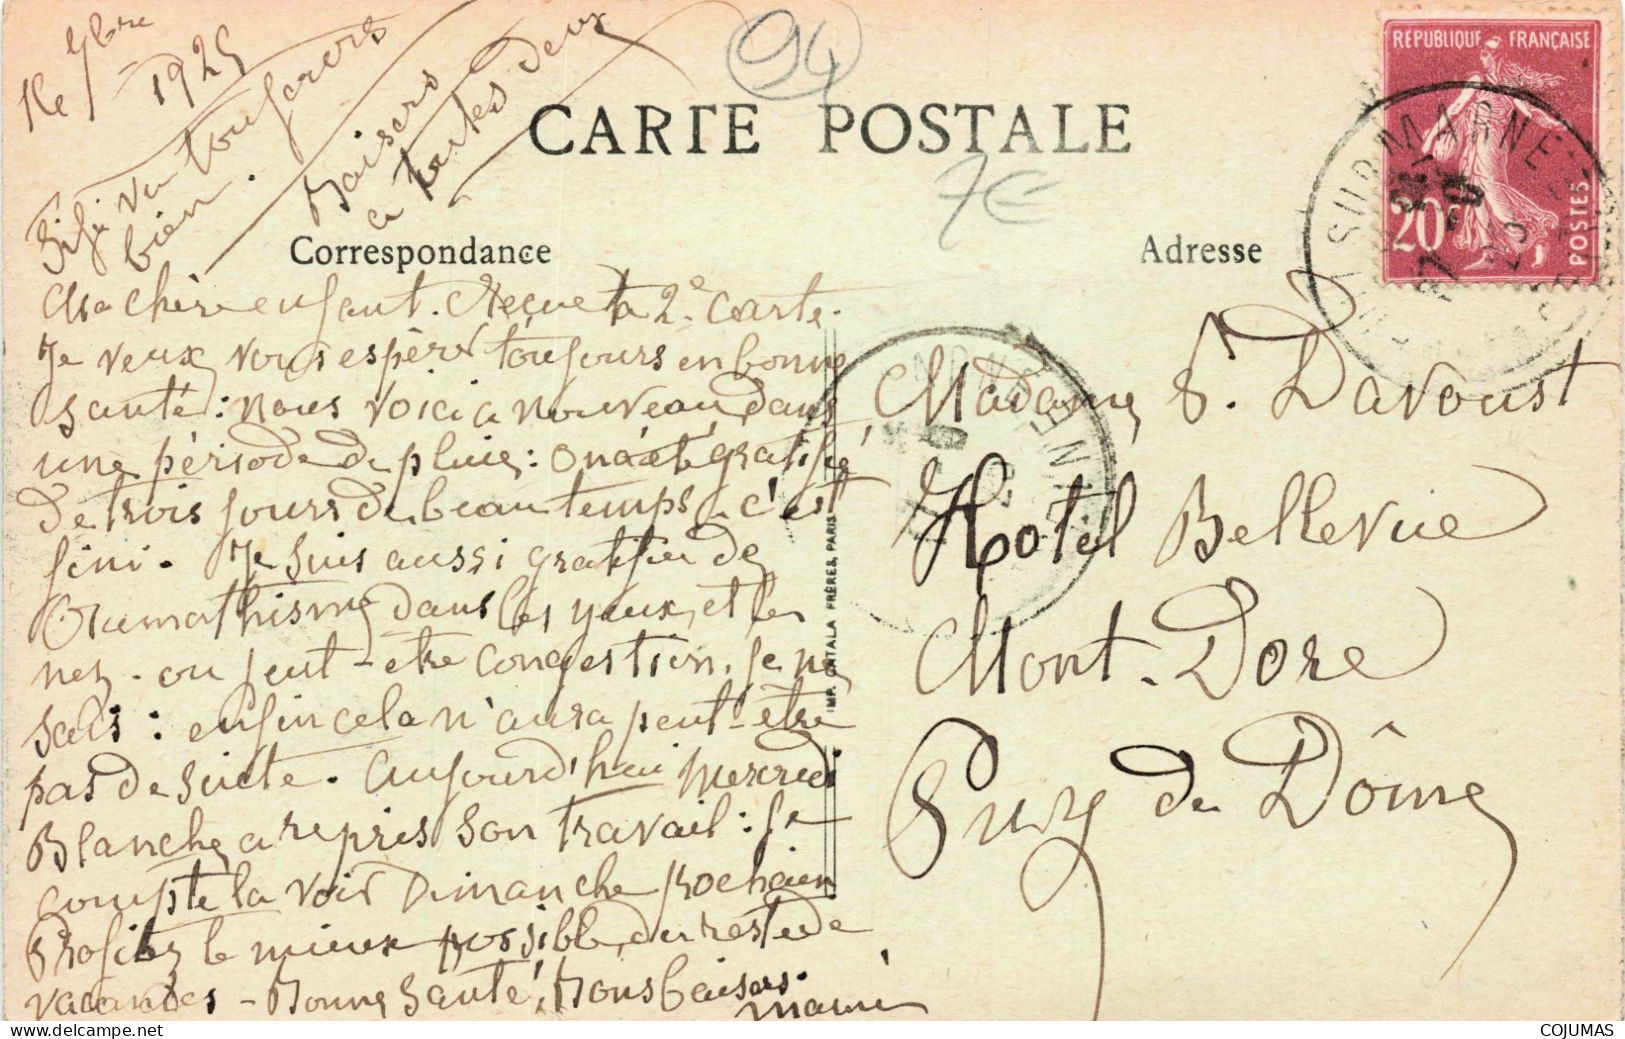 7bre
1925
94
CARTE POSTALE
7€
RÉPUBLIQUE FRANÇAISE
20c
POSTES
SUR MARNE
Fifi va toujours
bien.
Baisers
a toutes deux
Correspondance
Adresse
Ma chère enfant. Reçue ta 2e carte.
Je veux vous espérer toujours en bonne
santé : nous voici a nouveau dans
une période de pluie : on a été gratifié
de trois jours de beau temps, c'est
fini. Je suis aussi gratifié de
rhumathisme dans les yeux, et le
nez. ou peut-etre congestion. je ne
sais : enfin cela n'aura peut-etre
pas de suite. Aujourd'hui mercredi
Blanche a repris son travail : je
compte la voir Dimanche prochain
Profitez le mieux possible, du reste de
vacances - Bonne santé, Bons baisers.
mamie
Madame S. Davoust
Hotel Bellevue
Mont-Dore
Puy de Dôme
IMP. CATALA FRÈRES, PARIS
COJUMAS